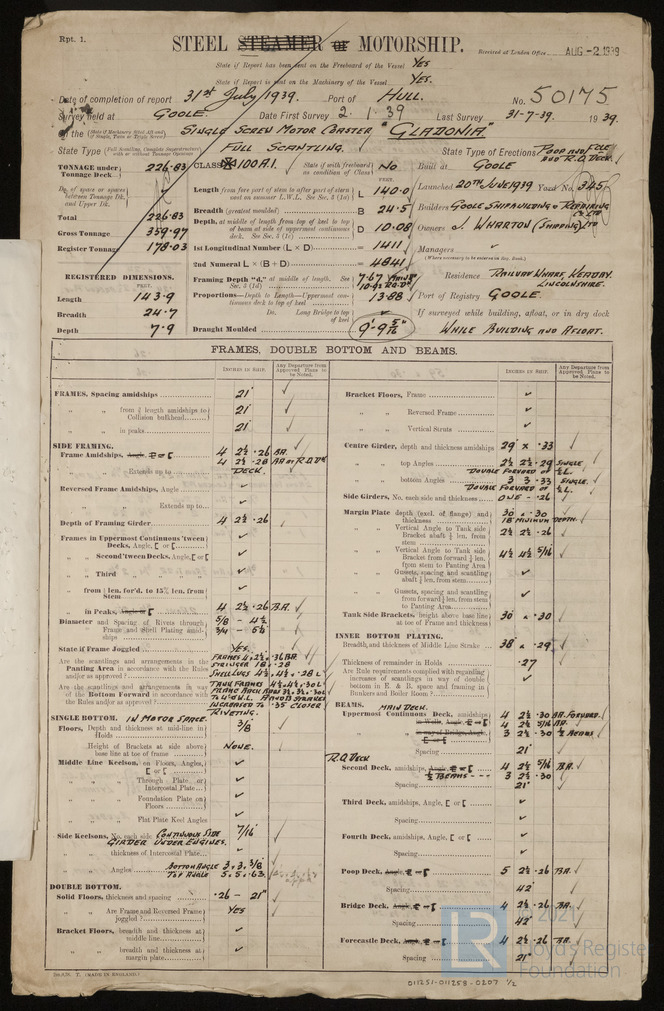 Rpt. 1.
STEEL STEAMER OR MOTORSHIP.
Received at London Office AUG -2 1939
State if Report has been sent on the Freeboard of the Vessel YES
State if Report is sent on the Machinery of the Vessel YES.
Date of completion of report 31st July 1939. Port of HULL. No. 50175
Survey held at GOOLE. Date First Survey 2. 1. 39 Last Survey 31-7-39. 1939.
SINGLE SCREW MOTOR COASTER "GLADONIA"
State Type FULL SCANTLING. State Type of Erections POOP AND FCLE AND R.Q. DECK.
TONNAGE under Tonnage Deck 226.83
CLASS 100A.1. State if with freeboard as condition of Class No
Built at GOOLE
Do. of space or spaces between Tonnage Dk. and Upper Dk.
Length from fore part of stem to after part of stern on summer L.W.L. See Sec. 3 (1a) L 140.0
Launched 20TH JUNE 1939 Yard No. 345
Total 226.83
Breadth (greatest moulded) B 24.5
Builders GOOLE SHIPBUILDING & REPAIRING Co LTD
Gross Tonnage 359.97
Depth, at middle of length from top of keel to top of beam at side of uppermost continuous deck. See Sec. 3 (1c) D 10.08
Owners J. WHARTON (SHIPPING) LTD
Register Tonnage 178.03
1st Longitudinal Number (L × D) = 1411
Managers
(Where necessary to be entered on Reg. Book.)
2nd Numeral L × (B + D) = 4841
REGISTERED DIMENSIONS.
FEET.
Framing Depth "d," at middle of length. See Sec. 3 (1d) 7.67
Residence RAILWAY WHARF, KEADBY. LINCOLNSHIRE.
Length 143.9
Proportions—Depth to Length—Uppermost continuous deck to top of keel 13.88
Port of Registry GOOLE.
Breadth 24.7
Do. Long Bridge to top of keel
If surveyed while building, afloat, or in dry dock
Depth 7.9
Draught Moulded 9'-9 5/16"
WHILE BUILDING AND AFLOAT.
FRAMES, DOUBLE BOTTOM AND BEAMS.
INCHES IN SHIP
Any Departure from Approved Plans to be Noted.
INCHES IN SHIP
Any Departure from Approved Plans to be Noted.
FRAMES, Spacing amidships 21"
" " from ⅕ length amidships to Collision bulkhead 21"
" " in peaks 21"
SIDE FRAMING.
Frame Amidships, Angle, E or [ 4 2½ .26 BA.
4 2½ .28 BA AT R.Q.DK
" " Extends up to DECK.
Reversed Frame Amidships, Angle
" " Extends up to
Depth of Framing Girder 4 2½ .26
Frames in Uppermost Continuous 'tween Decks, Angle, [ or [
" Second 'tween Decks, Angle, [ or [
" Third " "
" from ⅕ len. for'd. to 15% len. from Stem
" in Peaks, Angle or [ 4 2½ .26 BA.
Diameter and Spacing of Rivets through Frame and Shell Plating amidships 5/8 - 4½
3/4 - 5¼
State if Frame Joggled YES.
Are the scantlings and arrangements in the Panting Area in accordance with the Rules and/or as approved? FRAMES 4 2½ .36 BA
STRINGER 18 .28
SHELL LUGS 4½ 4½ .28 L
Are the scantlings and arrangements in way of the Bottom Forward in accordance with the Rules and/or as approved? TANK FRAMES 4½ 4½ .30 L
INCREASED TO .35 CLOSER RIVETING.
SINGLE BOTTOM. IN MOTOR SPACE.
Floors, Depth and thickness at mid-line in Holds 3/8
Height of Brackets at side above base line at toe of frame NONE.
Middle Line Keelson, on Floors, Angles, [ or [
" " Through Plate or Intercostal Plate
" " Foundation Plate on Floors
" " Flat Plate Keel Angles
Side Keelsons, No. each side CONTINUOUS SIDE GIRDER UNDER ENGINES. 7/16
" " thickness of Intercostal Plate
" " Angles BOTTOM ANGLE 3 x 3 x 3/8
TOP ANGLE 5 x 5 x .63
DOUBLE BOTTOM.
Solid Floors, thickness and spacing .26 - 21"
" " Are Frame and Reversed Frame joggled? YES
Bracket Floors, breadth and thickness at middle line
" " breadth and thickness at margin plate
Bracket Floors, Frame
" " Reversed Frame
" " Vertical Struts
Centre Girder, depth and thickness amidships 29 x .33
" " top Angles 2½ 2½ .29 SINGLE
DOUBLE FORWARD OF ½ L.
" " bottom Angles 3 3 .33 SINGLE.
DOUBLE FORWARD OF ½ L.
Side Girders, No. each side and thickness ONE - .26
Margin Plate depth (excl. of flange) and thickness 30 x .30
18" MINIMUM DEPTH.
" " Vertical Angle to Tank side Bracket abaft ¼ len. from stem 2½ 2½ .26
" " Vertical Angle to Tank side Bracket from forward ¼ len. from stem to Panting Area 4½ 4½ 5/16
" " Gussets, spacing and scantling abaft ¼ len. from stem
" " Gussets, spacing and scantling from forward ¼ len. from stem to Panting Area
Tank Side Brackets, height above base line at toe of Frame and thickness 30 x .30
INNER BOTTOM PLATING.
Breadth and thickness of Middle Line Strake 38 x .29
Thickness of remainder in Holds .27
Are Rule requirements complied with regarding increases of scantlings in way of double bottom in E. & B. space and framing in Bunkers and Boiler Room?
BEAMS. MAIN DECK.
Uppermost Continuous Deck, amidships 4 2½ .30 BA. FORWARD.
4 2½ 5/16 BA.
3 2½ .30 ½ BEAMS
Spacing 21"
R.Q. DECK
Second Deck, amidships, Angle, E or [ 4 2½ 5/16 BA.
½ BEAMS 3 2½ .30
Spacing 21"
Third Deck, amidships, Angle, [ or [
Spacing
Fourth Deck, amidships, Angle, [ or [
Spacing
Poop Deck, Angle, E or [ 5 2½ .26 BA
Spacing 42"
Bridge Deck, Angle, E or [ 4 2½ .26 BA.
Spacing 42"
Forecastle Deck, Angle, E or [ 4 2½ .26 BA.
Spacing 21"
(MADE IN ENGLAND.)
011251-011258-0207 1/2
LR
© 2021
Lloyd's Register
Foundation